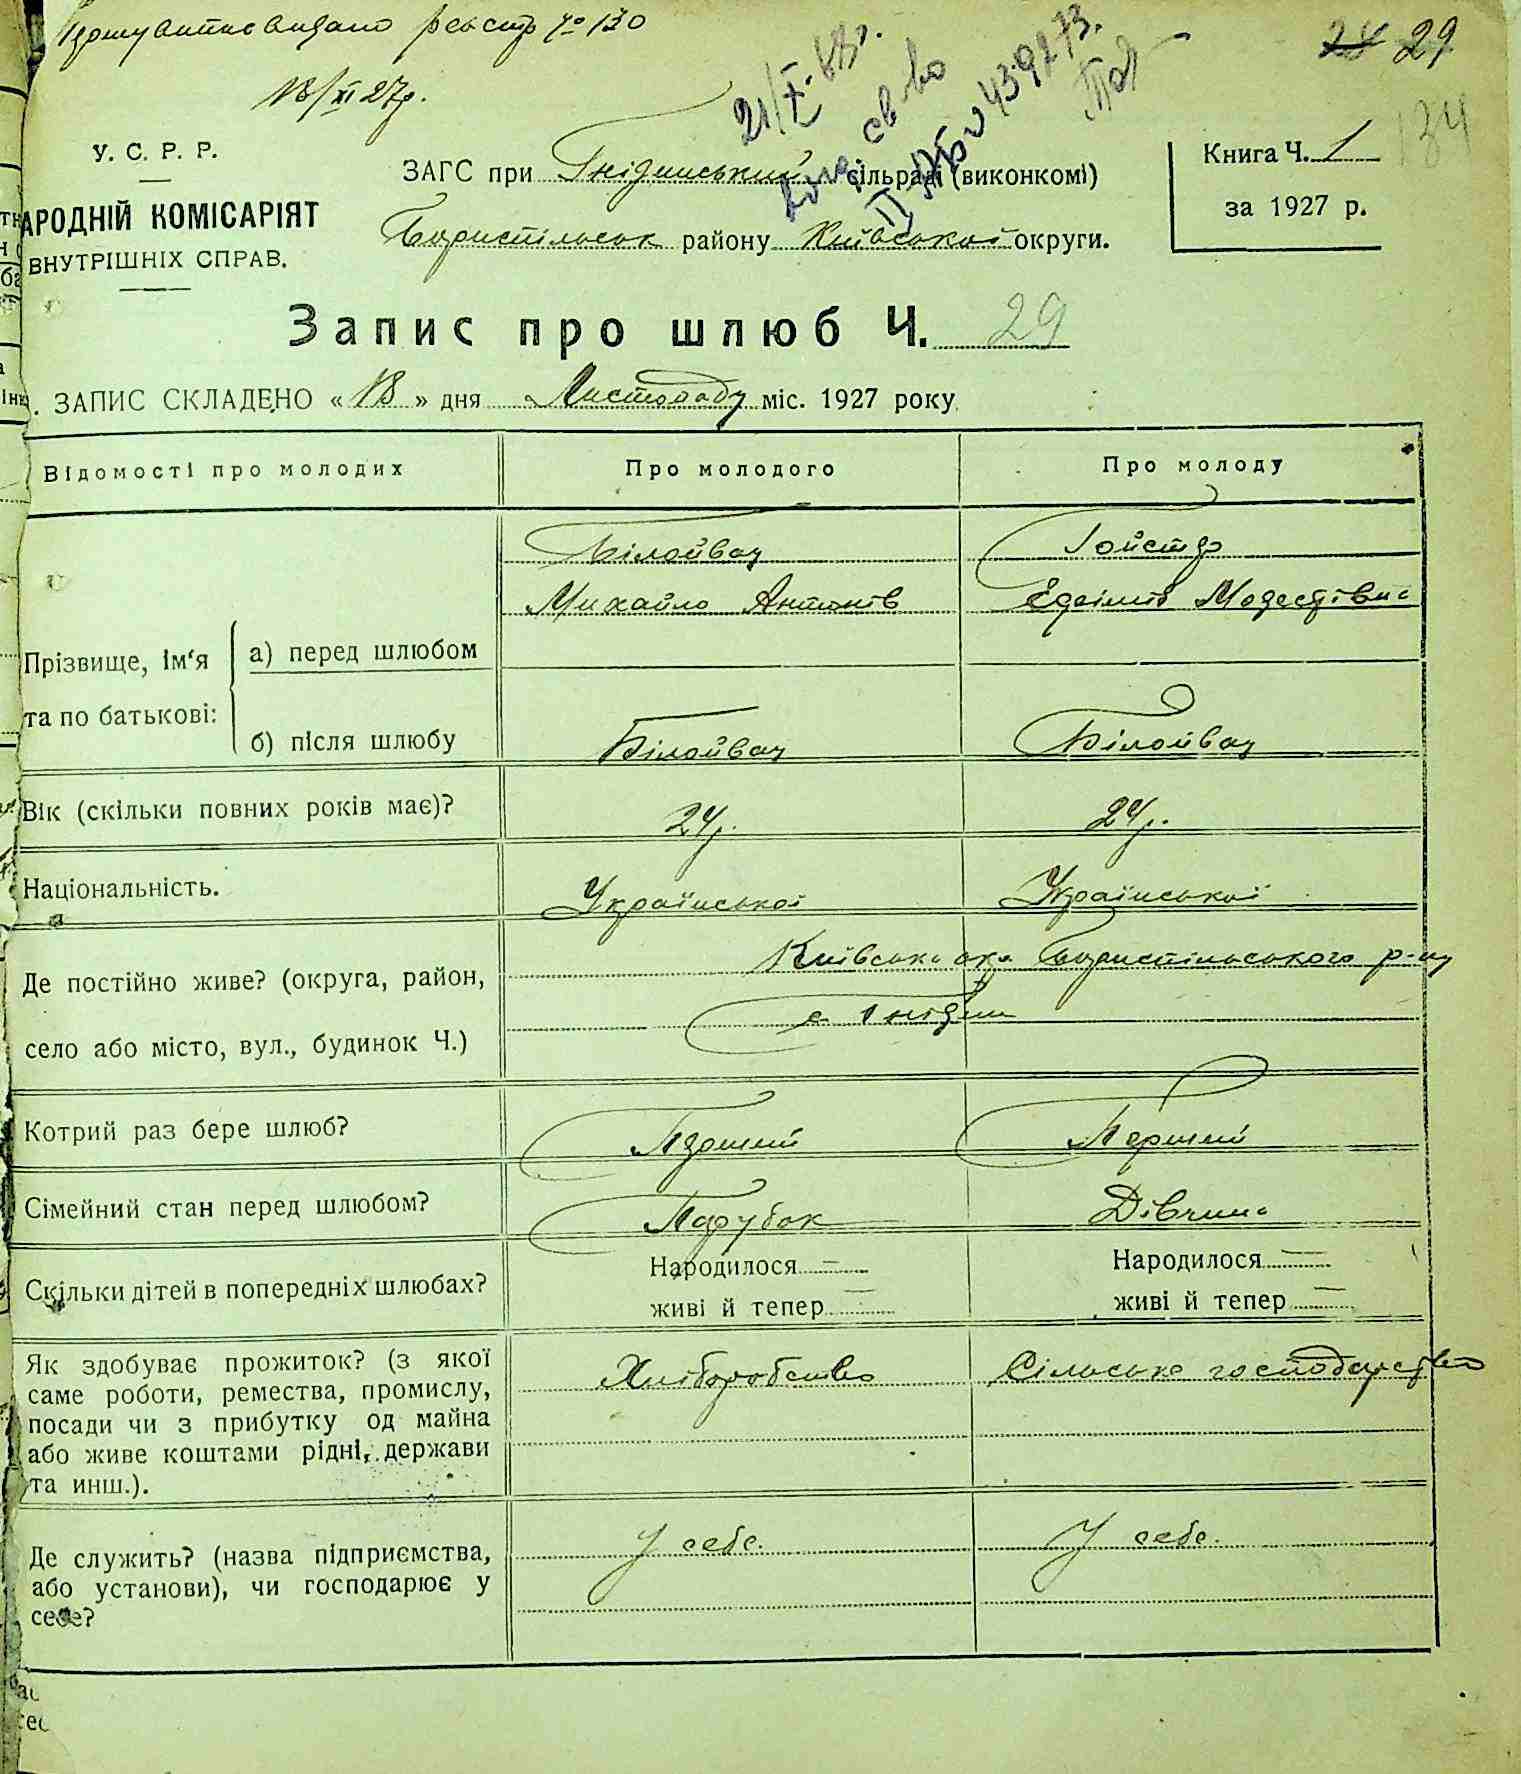 видано реєстр № 130
28 29
18/XI 27р.
21/X.
134
У. С. Р. Р.
ЗАГС при Гнідинській сільраді (виконкомі)
Книга Ч. 1
АРОДНІЙ КОМІСАРІЯТ
за 1927 р.
Бориспільськ району Київської округи.
ВНУТРІШНІХ СПРАВ.
Запис про шлюб Ч. 29
. ЗАПИС СКЛАДЕНО «18» дня Листопаду міс. 1927 року
Відомості про молодих Про молодого Про молоду
Білойван
Михайло Антонів Модестівна
Прізвище, ім'я а) перед шлюбом
та по батькові:
б) після шлюбу Білойван Білойван
Вік (скільки повних років має)? 24р. 24р.
Національність. Української Української
Київська окр. Бориспільського р-ну
Де постійно живе? (округа, район,
с. Гнідин
село або місто, вул., будинок Ч.)
Котрий раз бере шлюб? Перший Перший
Сімейний стан перед шлюбом? Парубок Дівчина
Скільки дітей в попередніх шлюбах? Народилося — Народилося —
живі й тепер — живі й тепер —
Як здобуває прожиток? (з якої Хліборобство Сільське господарство
саме роботи, ремества, промислу,
посади чи з прибутку од майна
або живе коштами рідні, держави
та инш.).
Де служить? (назва підприємства, У себе. У себе.
або установи), чи господарює у
себе?